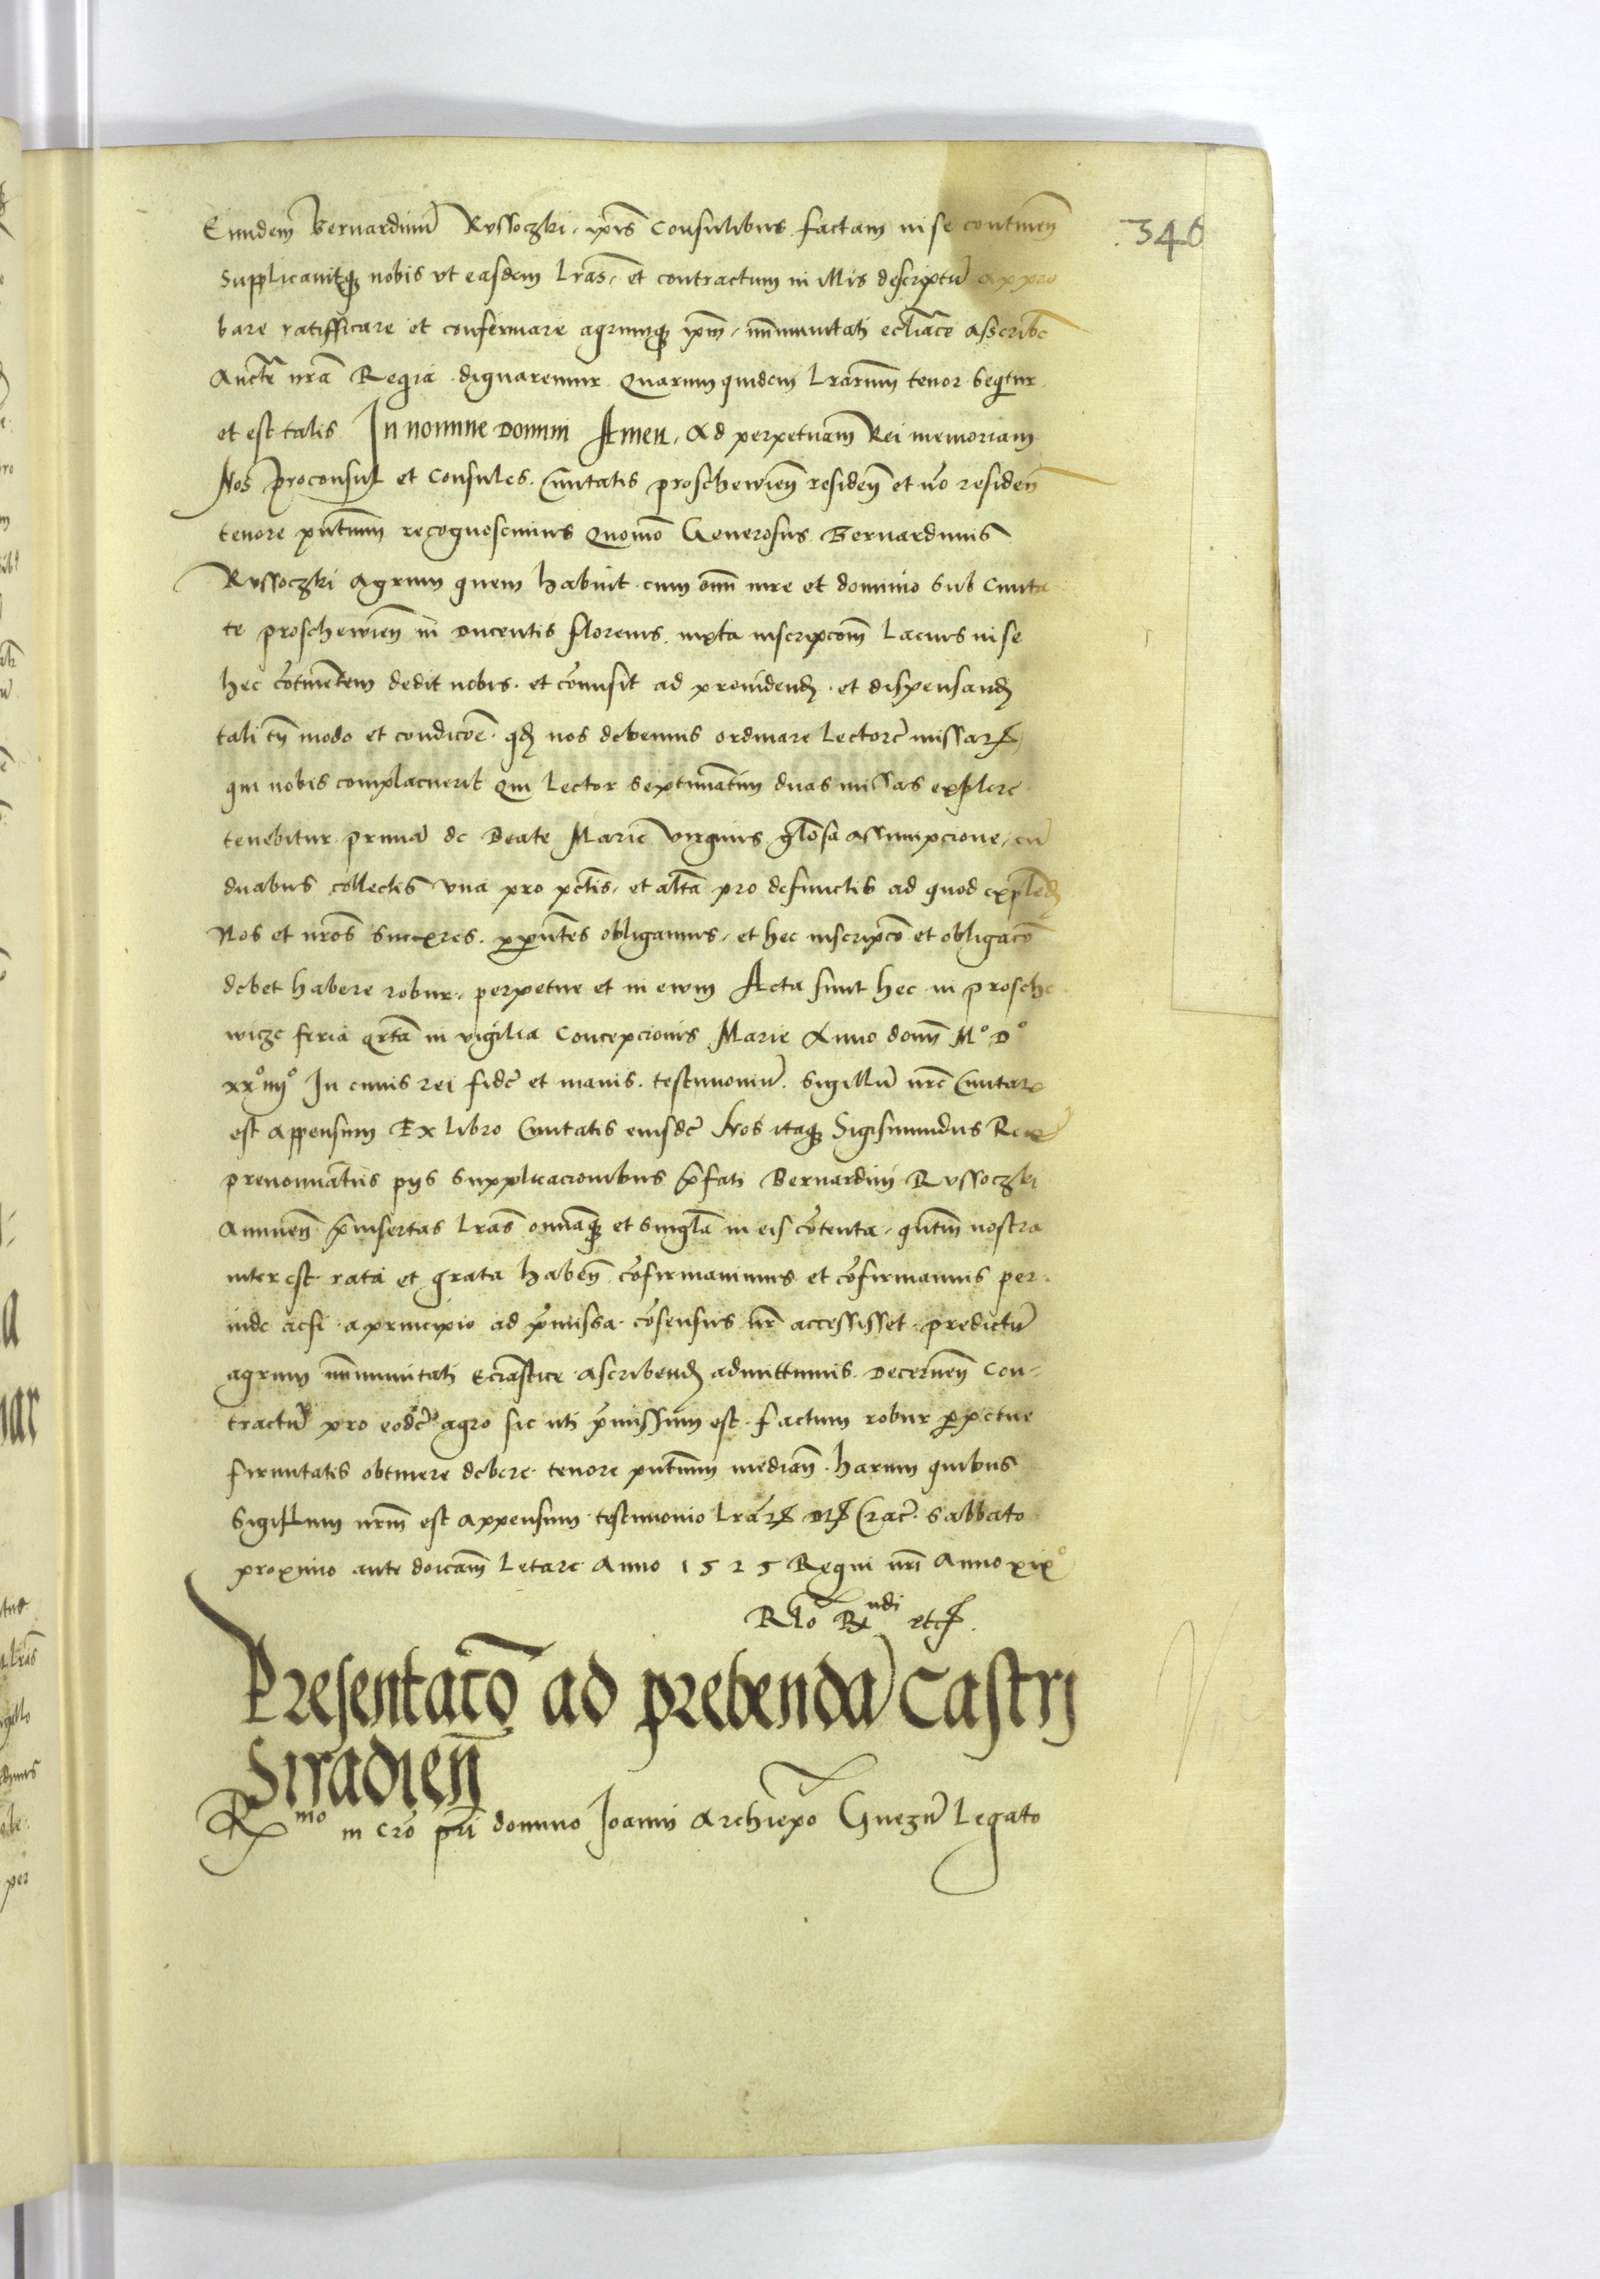 346
Eundem Bernardinū Russoczki ip̄is Consulibus factam in se continen̄
Supplicavitqȝ nobis ut easdem l̄ras et contractum in illis descriptū appro
bare ratifficare et confermare agrumqȝ ip̄m im̄munitati ecl̄iace asscribē
Auct̄e n̄ra Regia dignaremur Quarum quidem l̄rarum tenor seqtur
et est talis In nomine Domini Amen Ad perpetuam Rei memoriam
Nos Proconsul et Consules Civitatis proschewien̄ residen̄ et n̄o residen̄
tenore pn̄tium recognoscimus Quomo Generosus Bernardinus
Russoczki agrum quem habuit cum om̄i iure et dominio sub Civita
te proschewien̄ in Ducentis florenis iuxta inscripcōm Lacius in se
hec cōtinētem dedit nobis et cōmisit ad providend̄ et dispensand̄
tali tn̄ modo et condicōe qd̄ nos debemus ordinare Lectorē missarꝝ
qui nobis complacuerit Qui Lector septimatim duas missas explere
tenebitur primā de Beate Marie virginis gl̄osa assumpcione cū
duabus collectis una pro pct̄is et alt̄a pro defunctis ad quod explēd̄
Nos et n̄ros succ̄res pn̄tes obligamus et hec inscripcō et obligacō
debet habere robur perpetue et in evum Acta sunt hec in prosche
wicze feria qrt̄a in vigilia Concepcionis Marie Anno domī M° D°
xx°iiij° In cuius rei fidē et maius testimoniū Sigillū n̄re Civitatꝭ
est appensum Ex libro Civitatis eiusdē Nos itaqȝ Sigismundus Rex
prenominatus pijs supplicacionibus p̄fati Bernardini Russoczki
Annuen̄ p̄insertas l̄ras omniaqȝ et singl̄a in eis cōtenta qn̄tum nostra
interest rata et grata haben̄ cōfirmavimus et cōfirmamus per
inde acsi a principio ad p̄missa cōsensus n̄r accessisset predictū
agrum im̄munitati Ecc̄iastice ascribend̄ admittimus Decernen̄ Con
tractū pro eodē agro sic uti p̄missum est factum robur ꝑpetue
firmitatis obtinere debere tenore pn̄tium median̄ harum quibus
Sigillum n̄rm est appensum testimonio l̄rarꝝ Dꝝ Crac̄ Sabbato
proximo ante doīcam Letare Anno 1525 Regni n̄ri Anno xix°
Rl̄o Rndi etcꝭ
Presentacō ad prebendā Castri
Siradien̄
Rmo in Cro pri domino Joanni Archiepo Gnezn̄ Legato